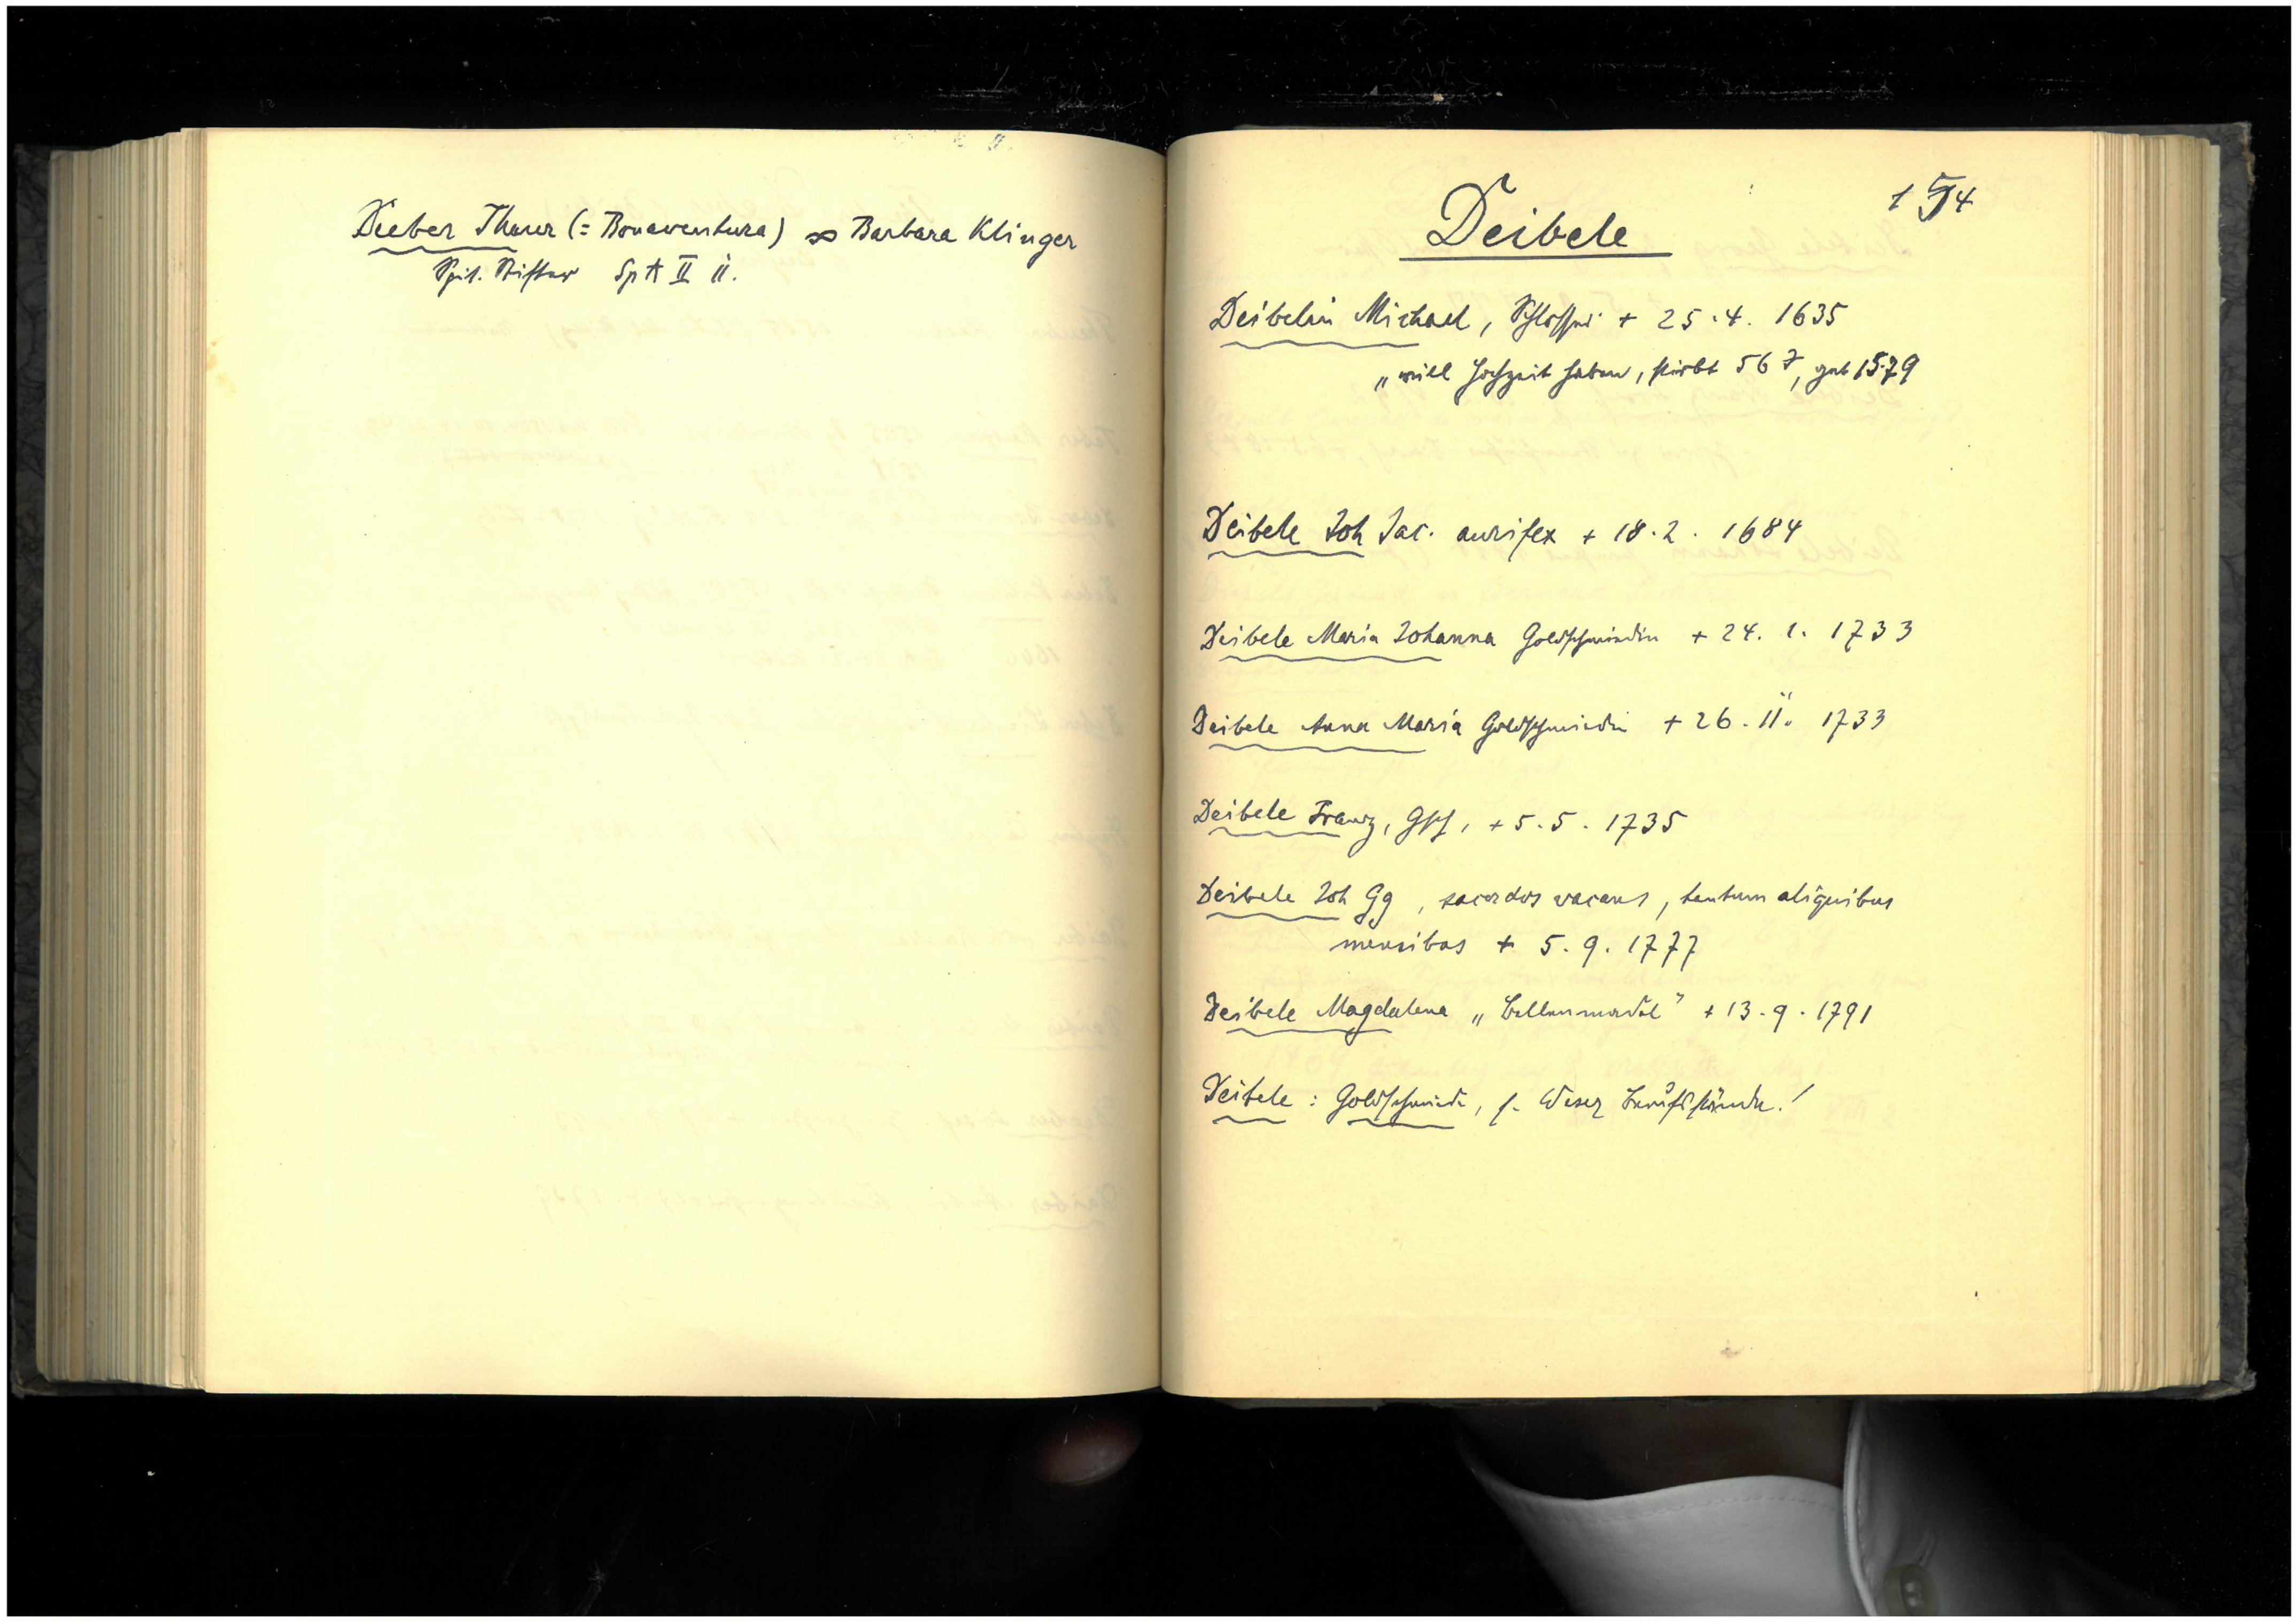 Dieber Thurer (= Bonaventura) ∞ Barbara Klinger
Spit. Stifter Sp A II ii.
154
Deibele
Deibelin Michael, Schlosser + 25.4. 1635
„will Hochzeit haben, stirbt 56 J, geb 1579
Deibele Joh Jac. aurifex + 18.2. 1684
Deibele Maria Johanna Goldschmiedin + 24. 1. 1733
Deibele Anna Maria Goldschmiedin + 26. 11. 1733
Deibele Franz, Gsch, + 5.5. 1735
Deibele Joh Gg, sacerdos vacans, tantum aliquibus
mensibus + 5.9. 1777
Deibele Magdalena + 13.9. 1791
Deibele: Goldschmiede, s. Weser Berufsstände!